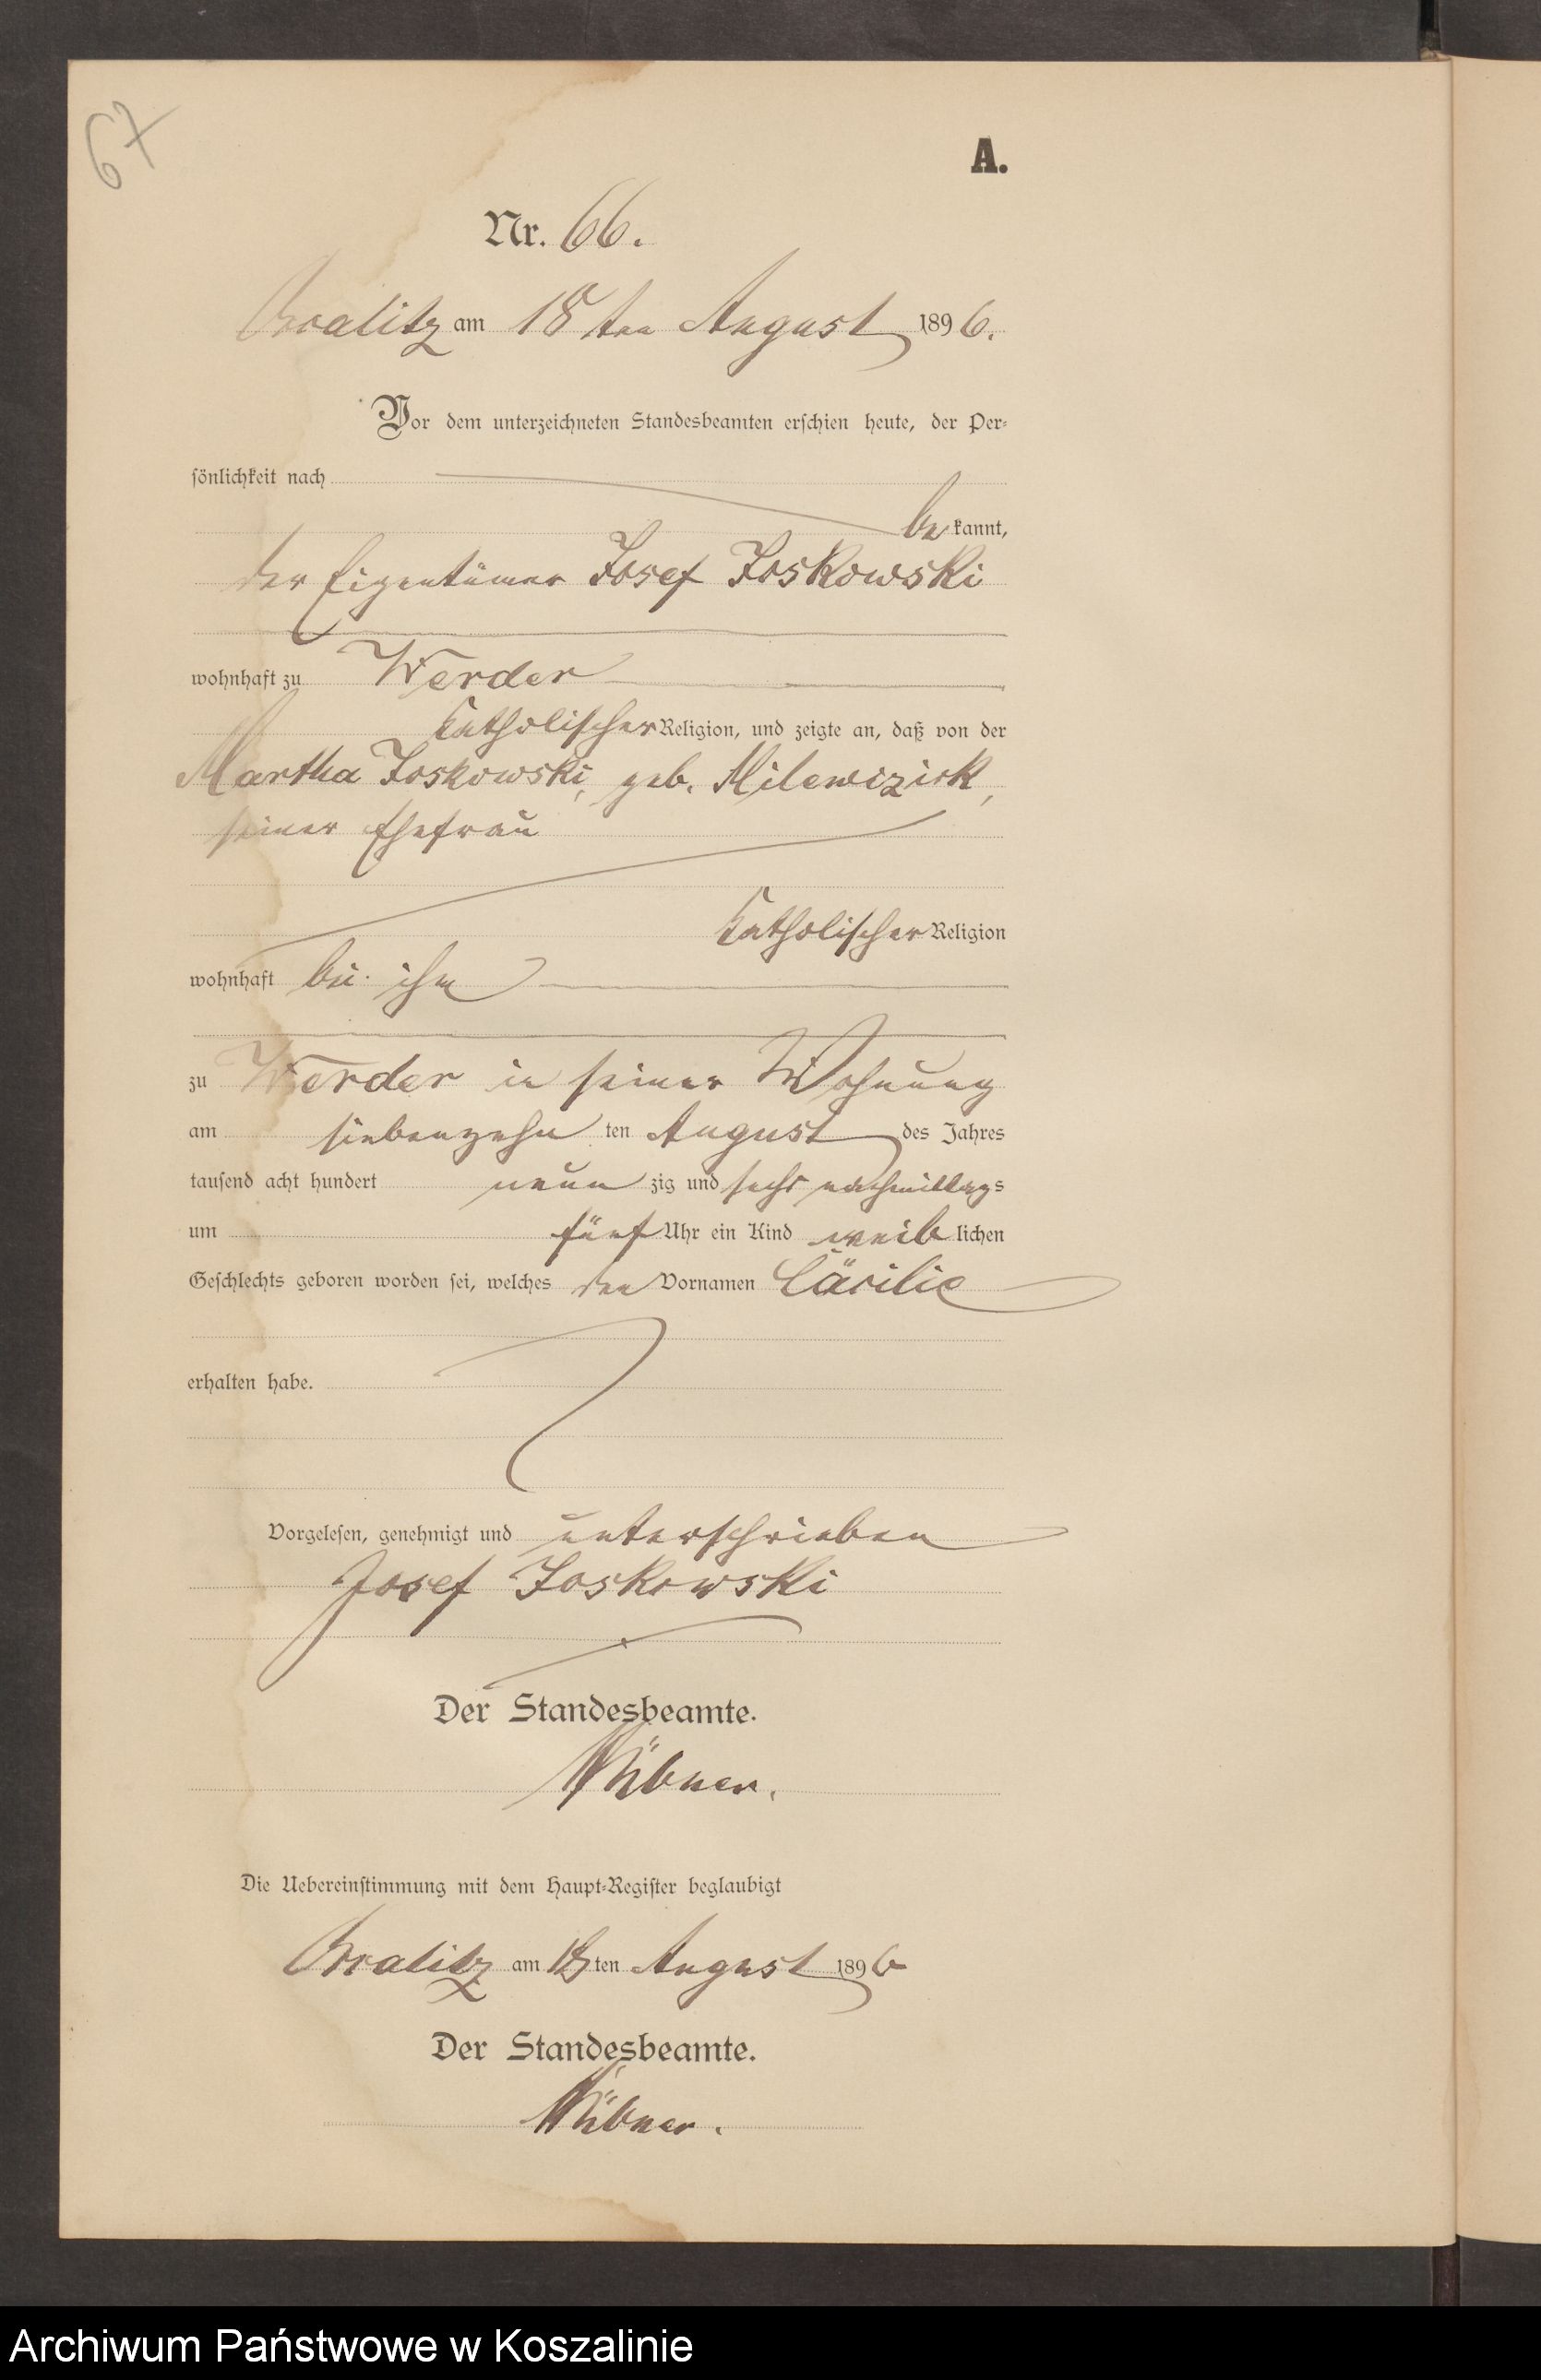 67
A.
Nr. 66.
am 18ten August 1896.
Vor dem unterzeichneten Standesbeamten erschien heute, der Per-
sönlichkeit nach
bekannt,
der Eigentümer Josef Joskowski
wohnhaft zu Werder
katholischer Religion, und zeigte an, daß von der
Martha Joskowski, geb. Milewizick,
seiner Ehefrau
katholischer Religion
wohnhaft bei ihm
zu Werder in seiner Wohnung
am siebenzehn ten August des Jahres
tausend acht hundert neun zig und sechs nachmittags
um fünf Uhr ein Kind weiblichen
Geschlechts geboren worden sei, welches den Vornamen Cäcilie
erhalten habe.
Vorgelesen, genehmigt und unterschrieben
Josef Joskowski
Der Standesbeamte.
Die Uebereinstimmung mit dem Haupt-Register beglaubigt
am 18ten August 1896
Der Standesbeamte.
Archiwum Państwowe w Koszalinie